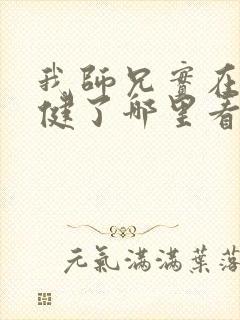 我師兄實在
健了哪里看
元氣滿滿葉落